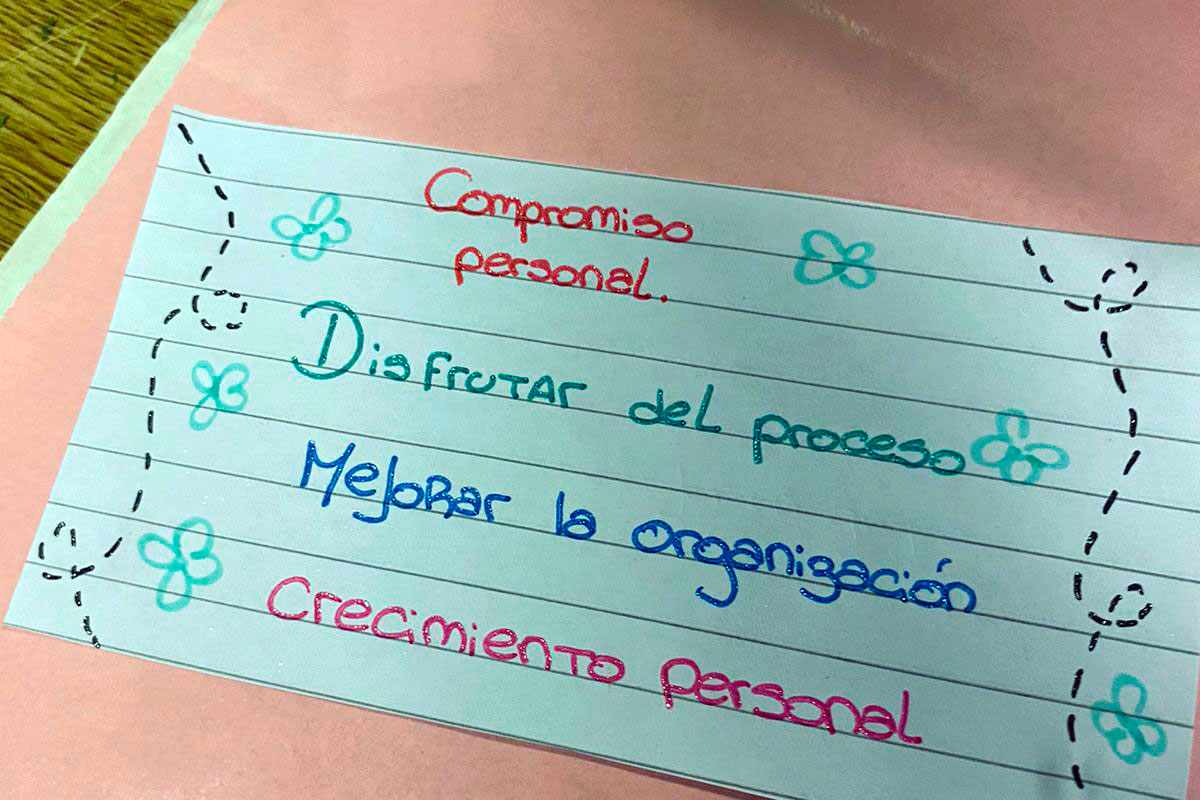 Compromiso
personal.
Disfrutar del proceso
Mejorar la organización
Crecimiento personal